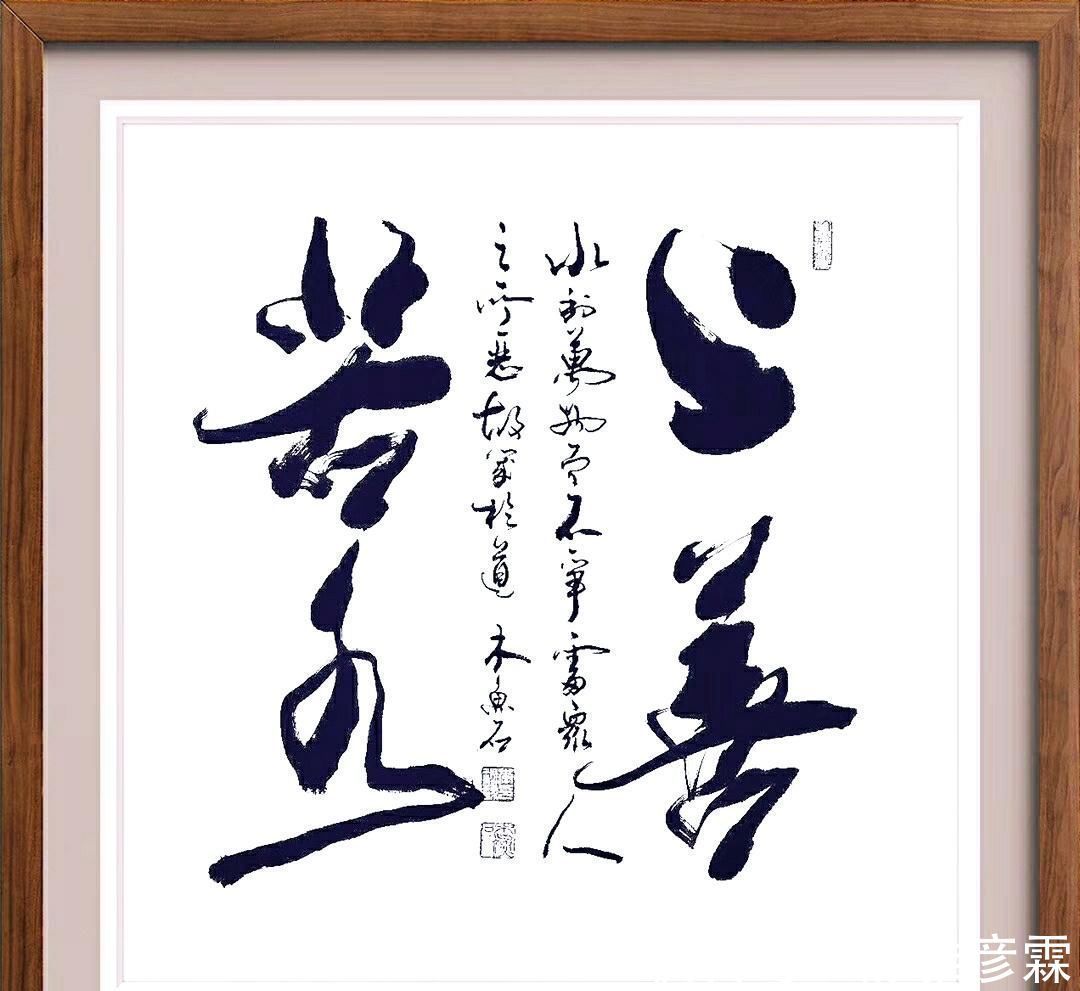 上善
水利萬物而不爭處眾人
之所惡故幾於道 木魚石
若水
彦霖